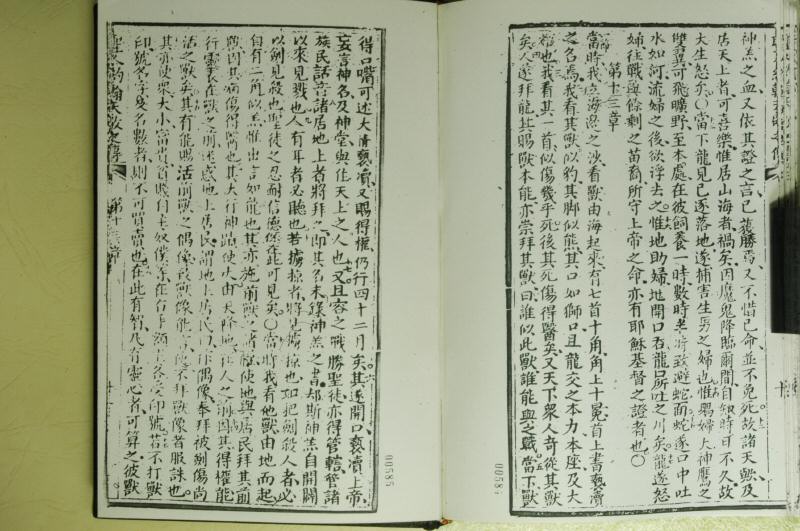 神羔之血又依其證之言已獲勝焉又不惜已命並不免死故諸天歟及
居天上者可喜樂惟居山海者禍矣因魔鬼降臨爾間自知時日不久故
大生怒矣○當下龍見已逐落地遂捕害生男之婦也惟賜婦大神鷹之
雙翼可飛曠野至本處在彼飼養一時數時半時致避蛇面蛇遂口中吐
水如河流婦之後欲浮去之惟地助婦地開口吞龍口所吐之川矣龍遂怒
婦往戰與餘剩之苗裔所守上帝之命亦有耶穌基督之證者也○
第十三章
當時我立海邊之沙看獸由海起來有七首十角角上十冕首上書褻瀆
之名焉我看其獸似豹其脚似熊其口如獅口且龍交之本力本座及大
權也我看其一首似傷幾乎死後其死傷得醫矣又天下衆人奇從其獸
矣人遂拜龍其賜獸本能亦崇拜其獸曰誰似此獸誰能與之戰當下獸
得口嘴可述大情褻瀆又賜得權仍行四十二月矣其遂開口褻瀆上帝
妄言神名及神堂與住天上之人也又且容之戰勝聖徒亦得管轄管諸
族民話音諸居地上者將拜之即其名未錄神羔之書却斯神羔自開闢
以來見戮也人有耳者必聽也若擄掠者將見擄掠也如把劍殺人者必
以劍見殺也聖徒之忍耐信德
自有二角似羔惟出言如龍也其亦施前獸之諸權使地與居民拜其前
獸因其病傷得醫也其大行神跡使火由天降地在人之前因其得權能
行靈表在獸之前迷惑地上居民謂地上居民曰作偶像奉拜被劍傷尚
活之獸矣其有能賜活前獸之偶像
其亦使衆大小富貴貧賤自主奴僕等在右手額上各受印號若不打獸
印號名字及名數者則不可買賣也在此有智凡有靈心者可算之彼獸
第十三章
00585